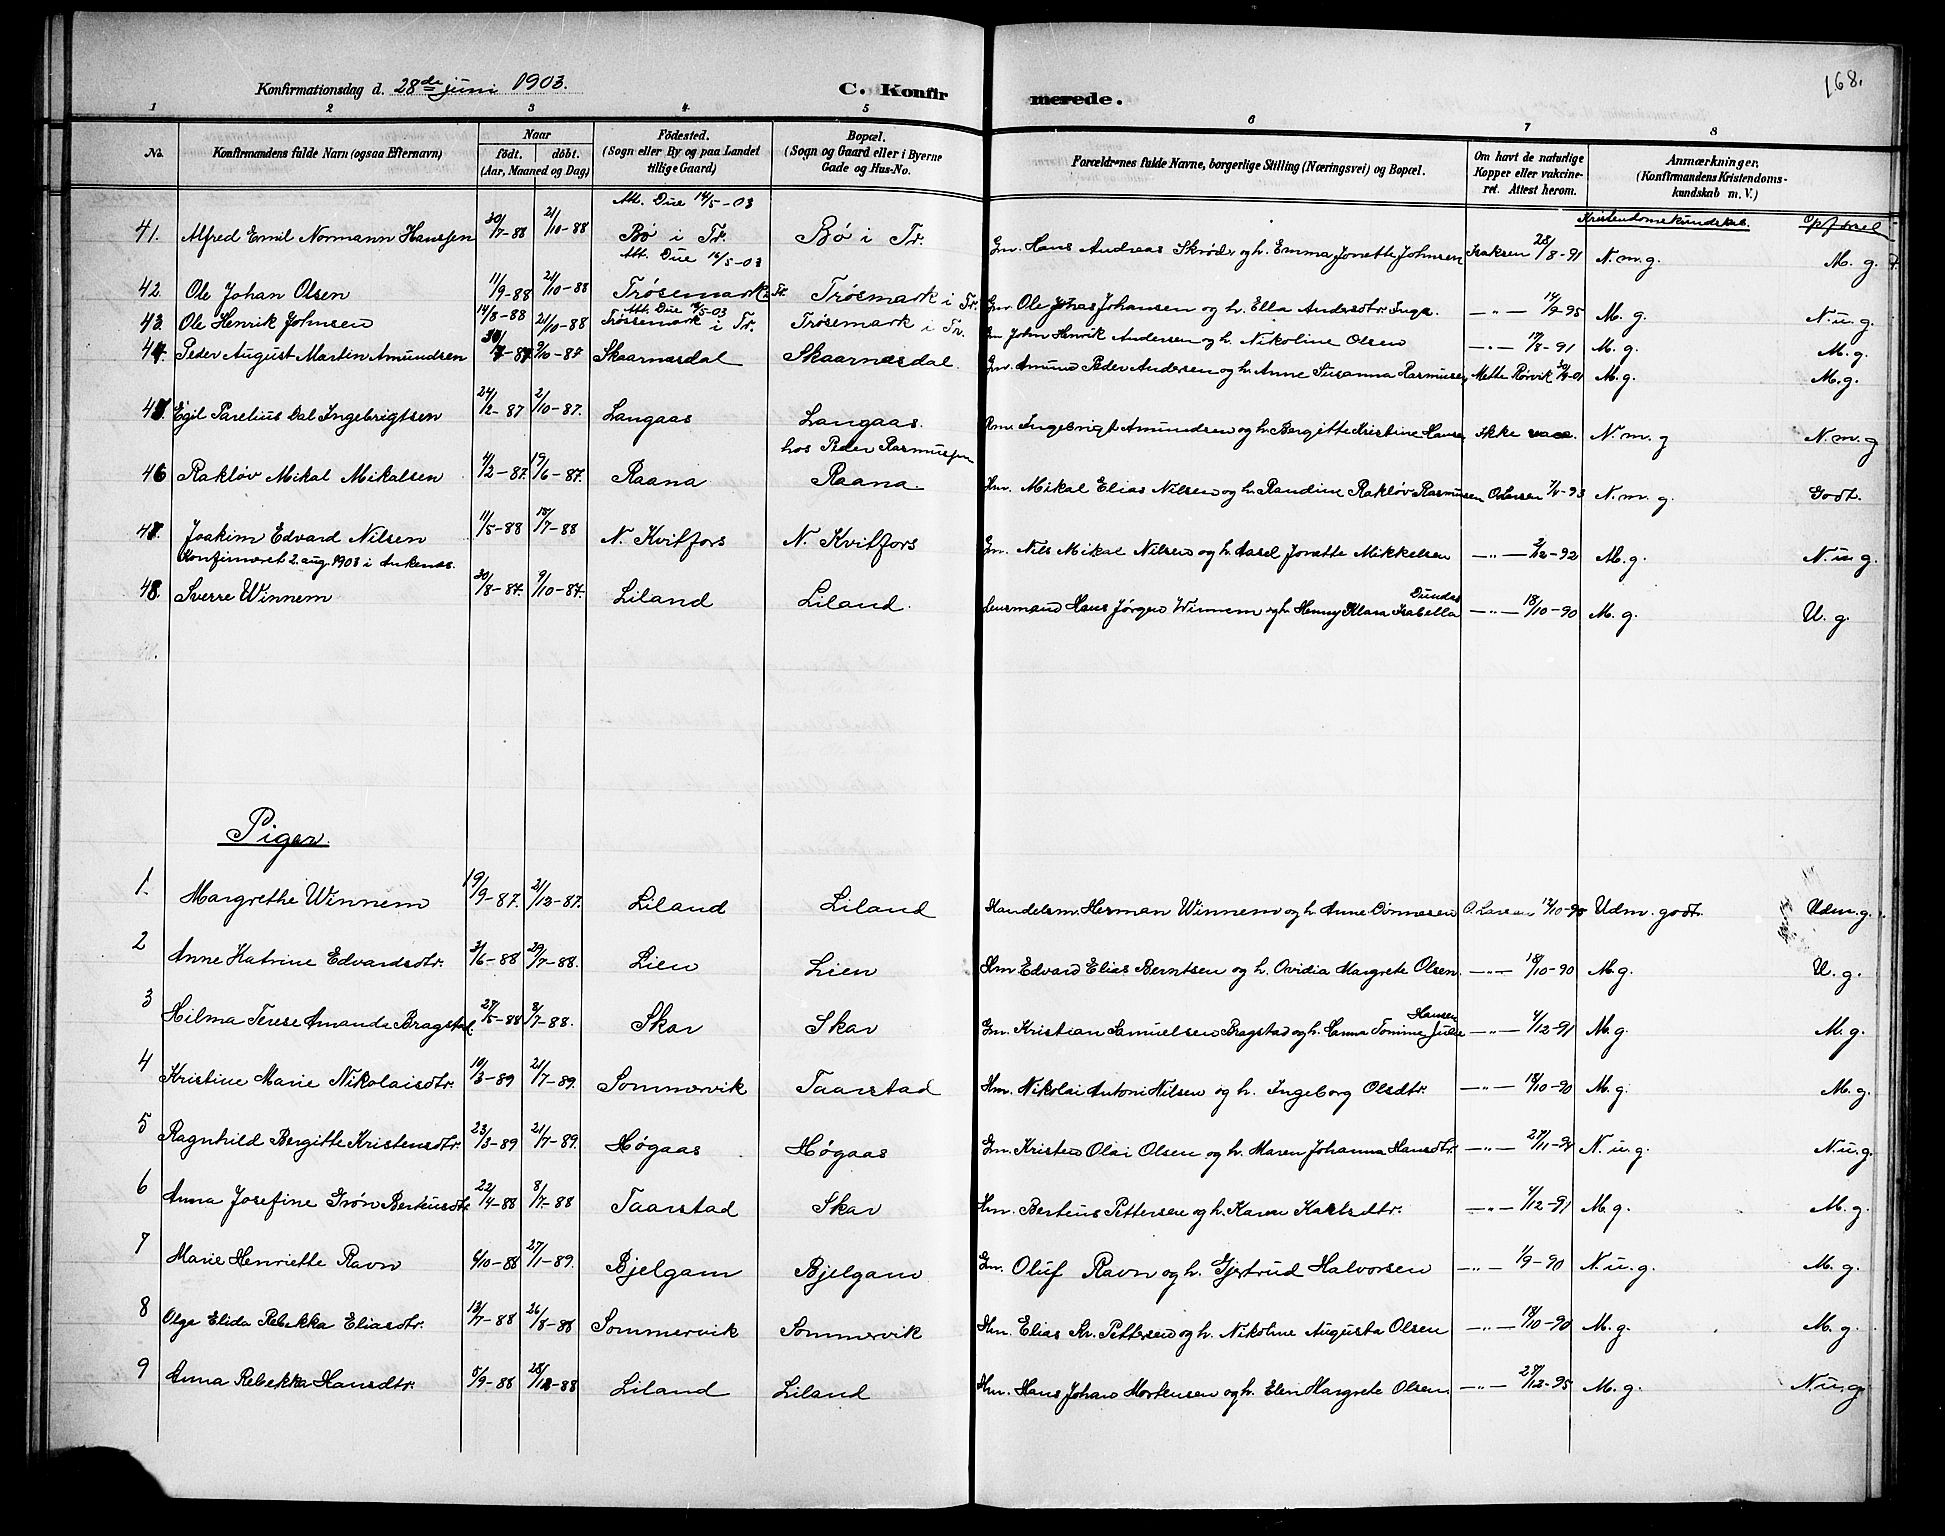 168.
Konfirmationsdag d. 28de juni 1903. C. Konfirmerede.
1 2 3 4 5 6 7 8
No. Konfirmandens fulde Navn (ogsaa Efternavn) Naar födt. döbt. (Aar, Maaned og Dag) Födested. (Sogn eller By og paa Landet tillige Gaard) Bopæl. (Sogn og Gaard eller i Byerne Gade og Hus-No. Forældrenes fulde Navne, borgerlige Stilling (Næringsvei) og Bopæl. Om havt de naturlige Kopper eller vakcineret. Attest herom. Anmærkninger, (Konfirmandens Kristendomskundskab m. V.)
Kristendomskundskab. Opførsel
Att. Due 14/5-03
41. Alfred Emil Normann Hanssen 30/7-88 21/10-88 Bø i Tr. Bø i Tr. Gm. Hans Andreas Skrøder og h. Emma Jonette Johnsen Isaksen 28/8-91 N.m.g. M.g.
Att. Due 16/5-03
42. Ole Johan Olsen 11/9-88 21/10-88 Trøsemark i Tr. Trøsmark i Tr. Gm. Ole Johas Johansen og h. Ella Andersdtr. Inga. —"— 14/9-95 M.g. N.u.g.
Att. Due 16/5-03
43. Ole Henrik Johnsen 14/8-88 21/10-88 Trøssemark i Tr. Trøsemark i Tr. Gm John Henrik Andersen og h. Nikoline Olsen —"— 17/8-91 M.g. M.g.
44. Peder August Martin Amundsen 30/7-87 9/10-87 Skaarnæsdal Skaarnæsdal. Gm. Amund Peder Andersen og h. Anne Susanna Rasmussen Mette Rørvik M.g. M.g.
45. Egil Parelius Dal Ingebrigtsen 24/2-87 2/10-87. Langaas Langaas. Ingebrigt Amundsen og h. Bergitte Kristine Hanse Ikke vacc. N.m.g N.m.g
hos Peder Rasmussen
46 Rakløv Mikal Mikalsen 4/2-87. 19/6-87. Raana Raana. Hm. Mikal Elias Nilsen og h. Randine Rakløv Rasmussen O. Larsen N.m.g. Godt.
47. Joakim Edvard Nilsen 11/5-88 15/7-88 N. Kvitfors N. Kvitfors Gm. Nils Mikal Nilsen og h. Aasel Jonette Mikkelsen —"— 2/12-92 M.g. N.u.g.
Konfirmeret 2. aug. 1903 i Ankenæs.
48. Sverre Winnem 30/8-87. 9/10-87. Liland Liland. Lensmand Hans Jörgen Winnem og h. Henny Klara Isabella Dundas —"— 18/10-90 M.g. U.g.
Piger.
1. Margrethe Winnem 19/9-87. 21/12-87. Liland Liland Handelsm. Herman Winnem og h. Anne Dinnesen O. Larsen 12/10-90 Udm. godt. Udm.g.
2 Anne Katrine Edvardsdtr. 3/6-88 29/7-88. Lien Lien Hm Edvard Elias Berntsen og h. Ovidia Margrete Olsen. —"— 18/10-90 M.g. U.g.
3 Hilma Terese Amanda Bragstad 27/5-88 8/7-88. Skar Skar Gm. Kristian Samuelsen Bragstad og h. Hanna Tomine Julie Hansen —"— 4/12-91 M.g. M.g.
4 Kristine Marie Nikolaisdtr. 19/3-89 21/7-89. Sommervik Taarstad Hm. Nikolai Antoni Nilsen og h. Ingeborg Olsdtr. —"— 18/10-90 M.g. M.g.
5 Ragnhild Bergitte Kristensdtr. 23/3-89 21/7-89. Høgaas Høgaas Gm. Kristen Olai Olsen og h. Maren Johanna Hansdtr. —"— N.u.g. N.u.g.
6 Anna Josefine Grøn Berteusdtr 22/4-88 8/7-88 Taarstad Skar Hm. Berteus Pettersen og h. Karen Karlsdtr. —"— 4/12-91 M.g. M.g.
7 Marie Henriette Ravn 6/10-88 27/1-89. Bjelgam Bjelgam Gm. Oluf Ravn og h. Gjertrud Halvorsen —"— 1/9-90 N.u.g. M.g.
8 Olga Elida Rebekka Eliasdtr. 13/7-88 26/8-88 Sommervik Sommervik Hm. Elias Kr. Pettersen og h. Nikoline Augusta Olsen —"— 18/10-90 M.g. M.g.
9 Anna Rebekka Hansdtr. 5/9-88 28/12-88 Liland Liland Hm. Hans Johan Mortensen og h. Elen Margrete Olsen. —"— 27/12-95 M.g. N.u.g